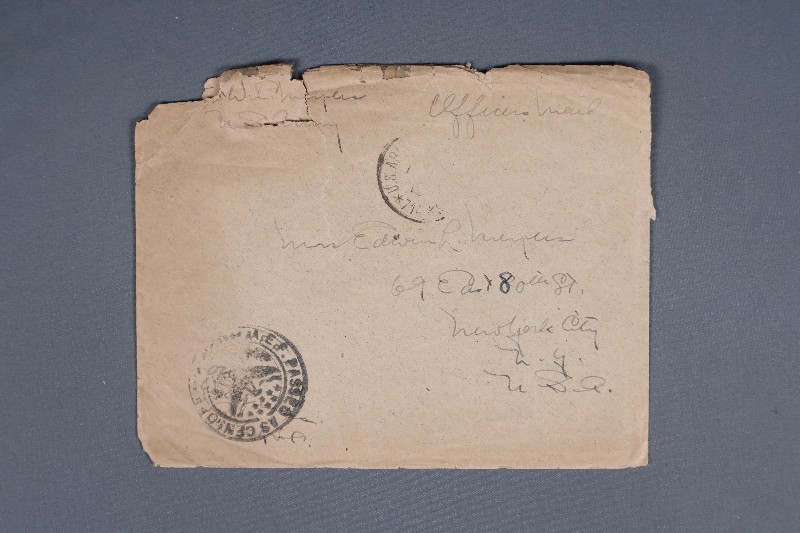 Officers Mail
U.S. Army
U.S. AR
Mrs Edwin L. Meyers
69 East 80th St.
New York City
N. Y.
U. S. A.
A.E.F. PASSED AS CENSORED